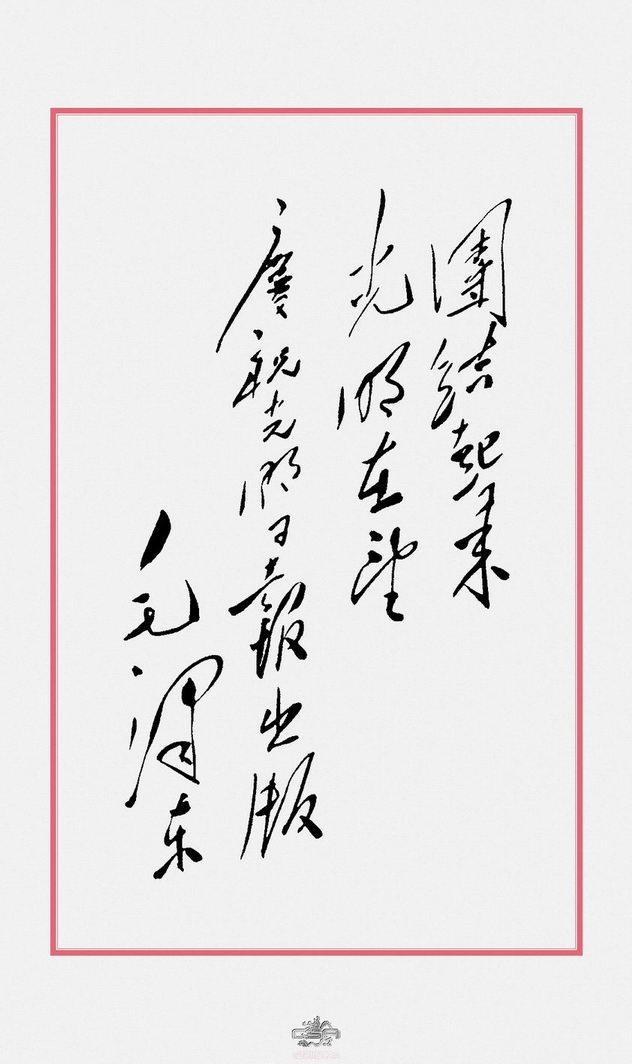 團結起來
光明在望
慶祝光明日報出版
毛澤东